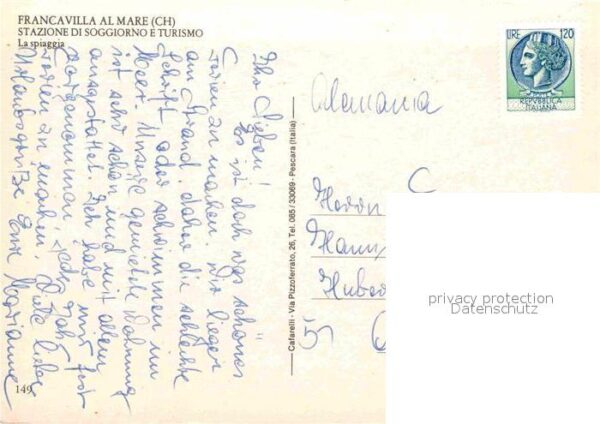 FRANCAVILLA AL MARE (CH)
STAZIONE DI SOGGIORNO E TURISMO
La spiaggia
LIRE 120
REPUBBLICA
ITALIANA
Ihr Lieben!
Es ist doch was schönes
Ferien zu machen. Wir liegen
am Strand, daher die schlechte
Schrift, oder schwimmen im
Meer. Unsere gemietete Wohnung
ist sehr schön und mit allem
ausgestattet. Ich habe mir fest
vorgenommen jedes Jahr
Ferien zu machen. Viele liebe
Urlaubsgrüße Eure Marianne
149
Cafarelli - Via Pizzoferrato, 26, Tel. 085/33069 - Pescara (Italia)
Alemania
Herrn
Hann
Huber
5
privacy protection
Datenschutz